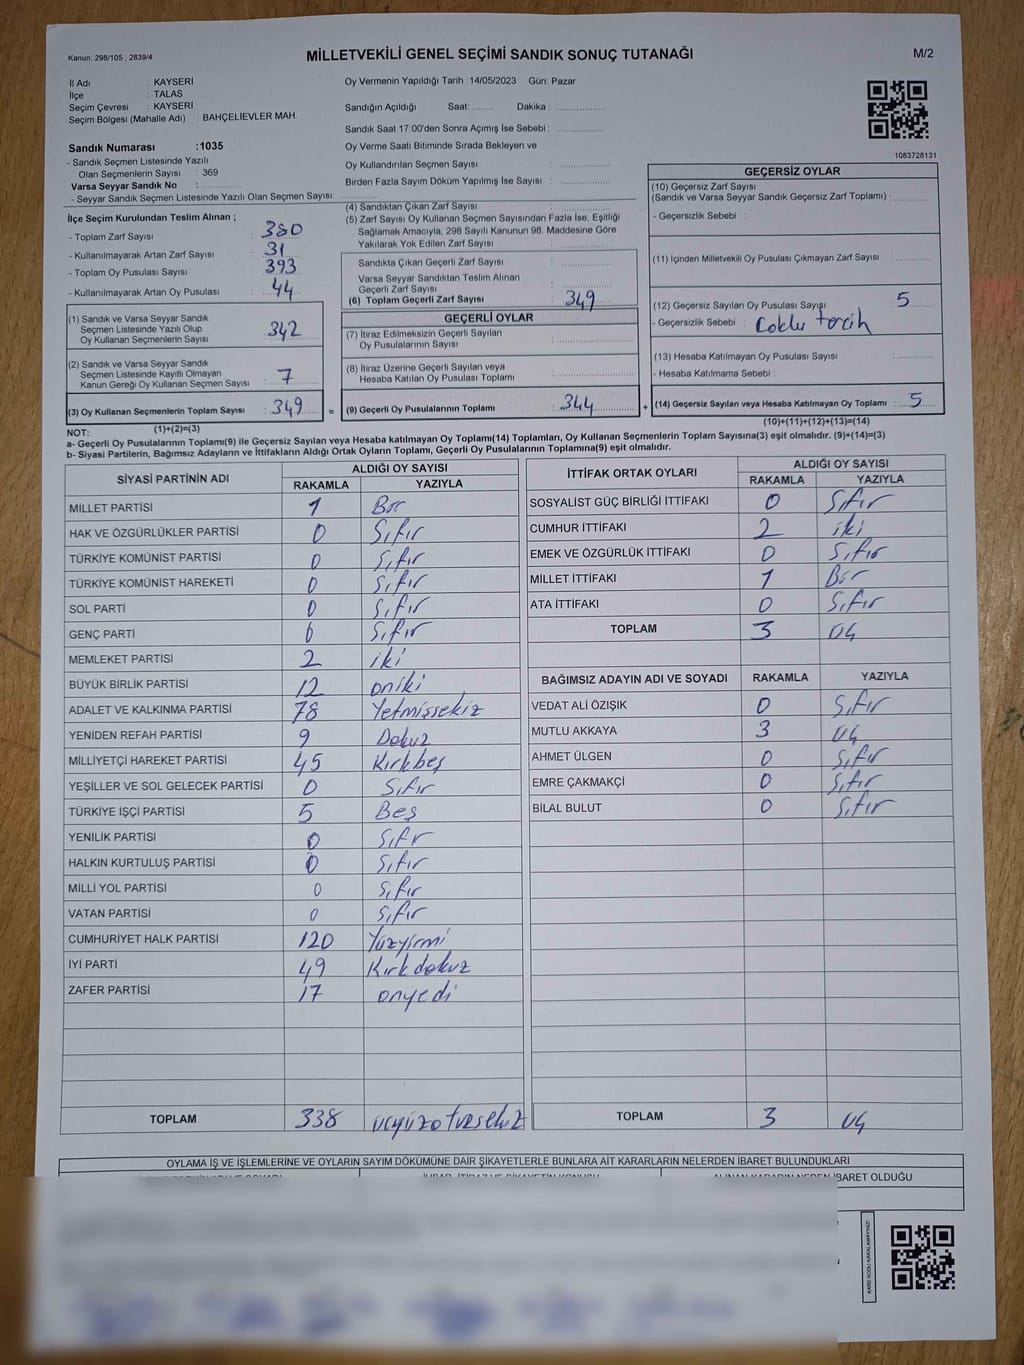 Kanun: 298/105 , 2839/4
MİLLETVEKİLİ GENEL SEÇİMİ SANDIK SONUÇ TUTANAĞI
M/2
İl Adı : KAYSERİ
İlçe : TALAS
Seçim Çevresi : KAYSERİ
Seçim Bölgesi (Mahalle Adı) : BAHÇELİEVLER MAH.
Sandık Numarası :1035
- Sandık Seçmen Listesinde Yazılı
Olan Seçmenlerin Sayısı : 369
Varsa Seyyar Sandık No :
- Seyyar Sandık Seçmen Listesinde Yazılı Olan Seçmen Sayısı:
Oy Vermenin Yapıldığı Tarih :14/05/2023 Gün: Pazar
Sandığın Açıldığı Saat: Dakika :
Sandık Saat 17:00'den Sonra Açımış İse Sebebi :
Oy Verme Saati Bitiminde Sırada Bekleyen ve
Oy Kullandırılan Seçmen Sayısı :
Birden Fazla Sayım Döküm Yapılmış İse Sayısı :
1083728131
İlçe Seçim Kurulundan Teslim Alınan ;
- Toplam Zarf Sayısı : 380
- Kullanılmayarak Artan Zarf Sayısı : 31
- Toplam Oy Pusulası Sayısı : 393
- Kullanılmayarak Artan Oy Pusulası : 44
(1) Sandık ve Varsa Seyyar Sandık
Seçmen Listesinde Yazılı Olup
Oy Kullanan Seçmenlerin Sayısı : 342
(2) Sandık ve Varsa Seyyar Sandık
Seçmen Listesinde Kayıtlı Olmayan
Kanun Gereği Oy Kullanan Seçmen Sayısı : 7
(3) Oy Kullanan Seçmenlerin Toplam Sayısı : 349
(1)+(2)=(3)
(4) Sandıktan Çıkan Zarf Sayısı :
(5) Zarf Sayısı Oy Kullanan Seçmen Sayısından Fazla İse, Eşitliği
Sağlamak Amacıyla, 298 Sayılı Kanunun 98. Maddesine Göre
Yakılarak Yok Edilen Zarf Sayısı :
Sandıkta Çıkan Geçerli Zarf Sayısı :
Varsa Seyyar Sandıktan Teslim Alınan
Geçerli Zarf Sayısı :
(6) Toplam Geçerli Zarf Sayısı : 349
GEÇERLİ OYLAR
(7) İtiraz Edilmeksizin Geçerli Sayılan
Oy Pusulalarının Sayısı :
(8) İtiraz Üzerine Geçerli Sayılan veya
Hesaba Katılan Oy Pusulası Toplamı :
= (9) Geçerli Oy Pusulalarının Toplamı : 344
GEÇERSİZ OYLAR
(10) Geçersiz Zarf Sayısı
(Sandık ve Varsa Seyyar Sandık Geçersiz Zarf Toplamı) :
- Geçersizlik Sebebi :
(11) İçinden Milletvekili Oy Pusulası Çıkmayan Zarf Sayısı :
(12) Geçersiz Sayılan Oy Pusulası Sayısı : 5
- Geçersizlik Sebebi : Çoklu tercih
(13) Hesaba Katılmayan Oy Pusulası Sayısı :
- Hesaba Katılmama Sebebi :
+ (14) Geçersiz Sayılan veya Hesaba Katılmayan Oy Toplamı : 5
(10)+(11)+(12)+(13)=(14)
NOT:
a- Geçerli Oy Pusulasının Toplamı(9) ile Geçersiz Sayılan veya Hesaba katılmayan Oy Toplamı(14) Toplamları, Oy Kullanan Seçmenlerin Toplam Sayısına(3) eşit olmalıdır. (9)+(14)=(3)
b- Siyasi Partilerin, Bağımsız Adayların ve İttifakların Aldığı Ortak Oyların Toplamı, Geçerli Oy Pusulalarının Toplamına(9) eşit olmalıdır.
SİYASİ PARTİNİN ADI ALDIĞI OY SAYISI
RAKAMLA YAZIYLA
MİLLET PARTİSİ 1 Bir
HAK VE ÖZGÜRLÜKLER PARTİSİ 0 Sıfır
TÜRKİYE KOMÜNİST PARTİSİ 0 Sıfır
TÜRKİYE KOMÜNİST HAREKETİ 0 Sıfır
SOL PARTİ 0 Sıfır
GENÇ PARTİ 0 Sıfır
MEMLEKET PARTİSİ 2 iki
BÜYÜK BİRLİK PARTİSİ 12 oniki
ADALET VE KALKINMA PARTİSİ 78 Yetmişsekiz
YENİDEN REFAH PARTİSİ 9 Dokuz
MİLLİYETÇİ HAREKET PARTİSİ 45 Kırkbeş
YEŞİLLER VE SOL GELECEK PARTİSİ 0 Sıfır
TÜRKİYE İŞÇİ PARTİSİ 5 Beş
YENİLİK PARTİSİ 0 Sıfır
HALKIN KURTULUŞ PARTİSİ 0 Sıfır
MİLLİ YOL PARTİSİ 0 Sıfır
VATAN PARTİSİ 0 Sıfır
CUMHURİYET HALK PARTİSİ 120 Yüzyirmi
İYİ PARTİ 49 Kırkdokuz
ZAFER PARTİSİ 17 onyedi
TOPLAM 338 üçyüzotuzsekiz
İTTİFAK ORTAK OYLARI ALDIĞI OY SAYISI
RAKAMLA YAZIYLA
SOSYALİST GÜÇ BİRLİĞİ İTTİFAKI 0 Sıfır
CUMHUR İTTİFAKI 2 iki
EMEK VE ÖZGÜRLÜK İTTİFAKI 0 Sıfır
MİLLET İTTİFAKI 1 Bir
ATA İTTİFAKI 0 Sıfır
TOPLAM 3 üç
BAĞIMSIZ ADAYIN ADI VE SOYADI RAKAMLA YAZIYLA
VEDAT ALİ ÖZIŞIK 0 Sıfır
MUTLU AKKAYA 3 üç
AHMET ÜLGEN 0 Sıfır
EMRE ÇAKMAKÇİ 0 Sıfır
BİLAL BULUT 0 Sıfır
TOPLAM 3 üç
OYLAMA İŞ VE İŞLEMLERİNE VE OYLARIN SAYIM DÖKÜMÜNE DAİR ŞİKAYETLERLE BUNLARA AİT KARARLARIN NELERDEN İBARET BULUNDUKLARI
ALINAN KARARIN NEDEN İBARET OLDUĞU